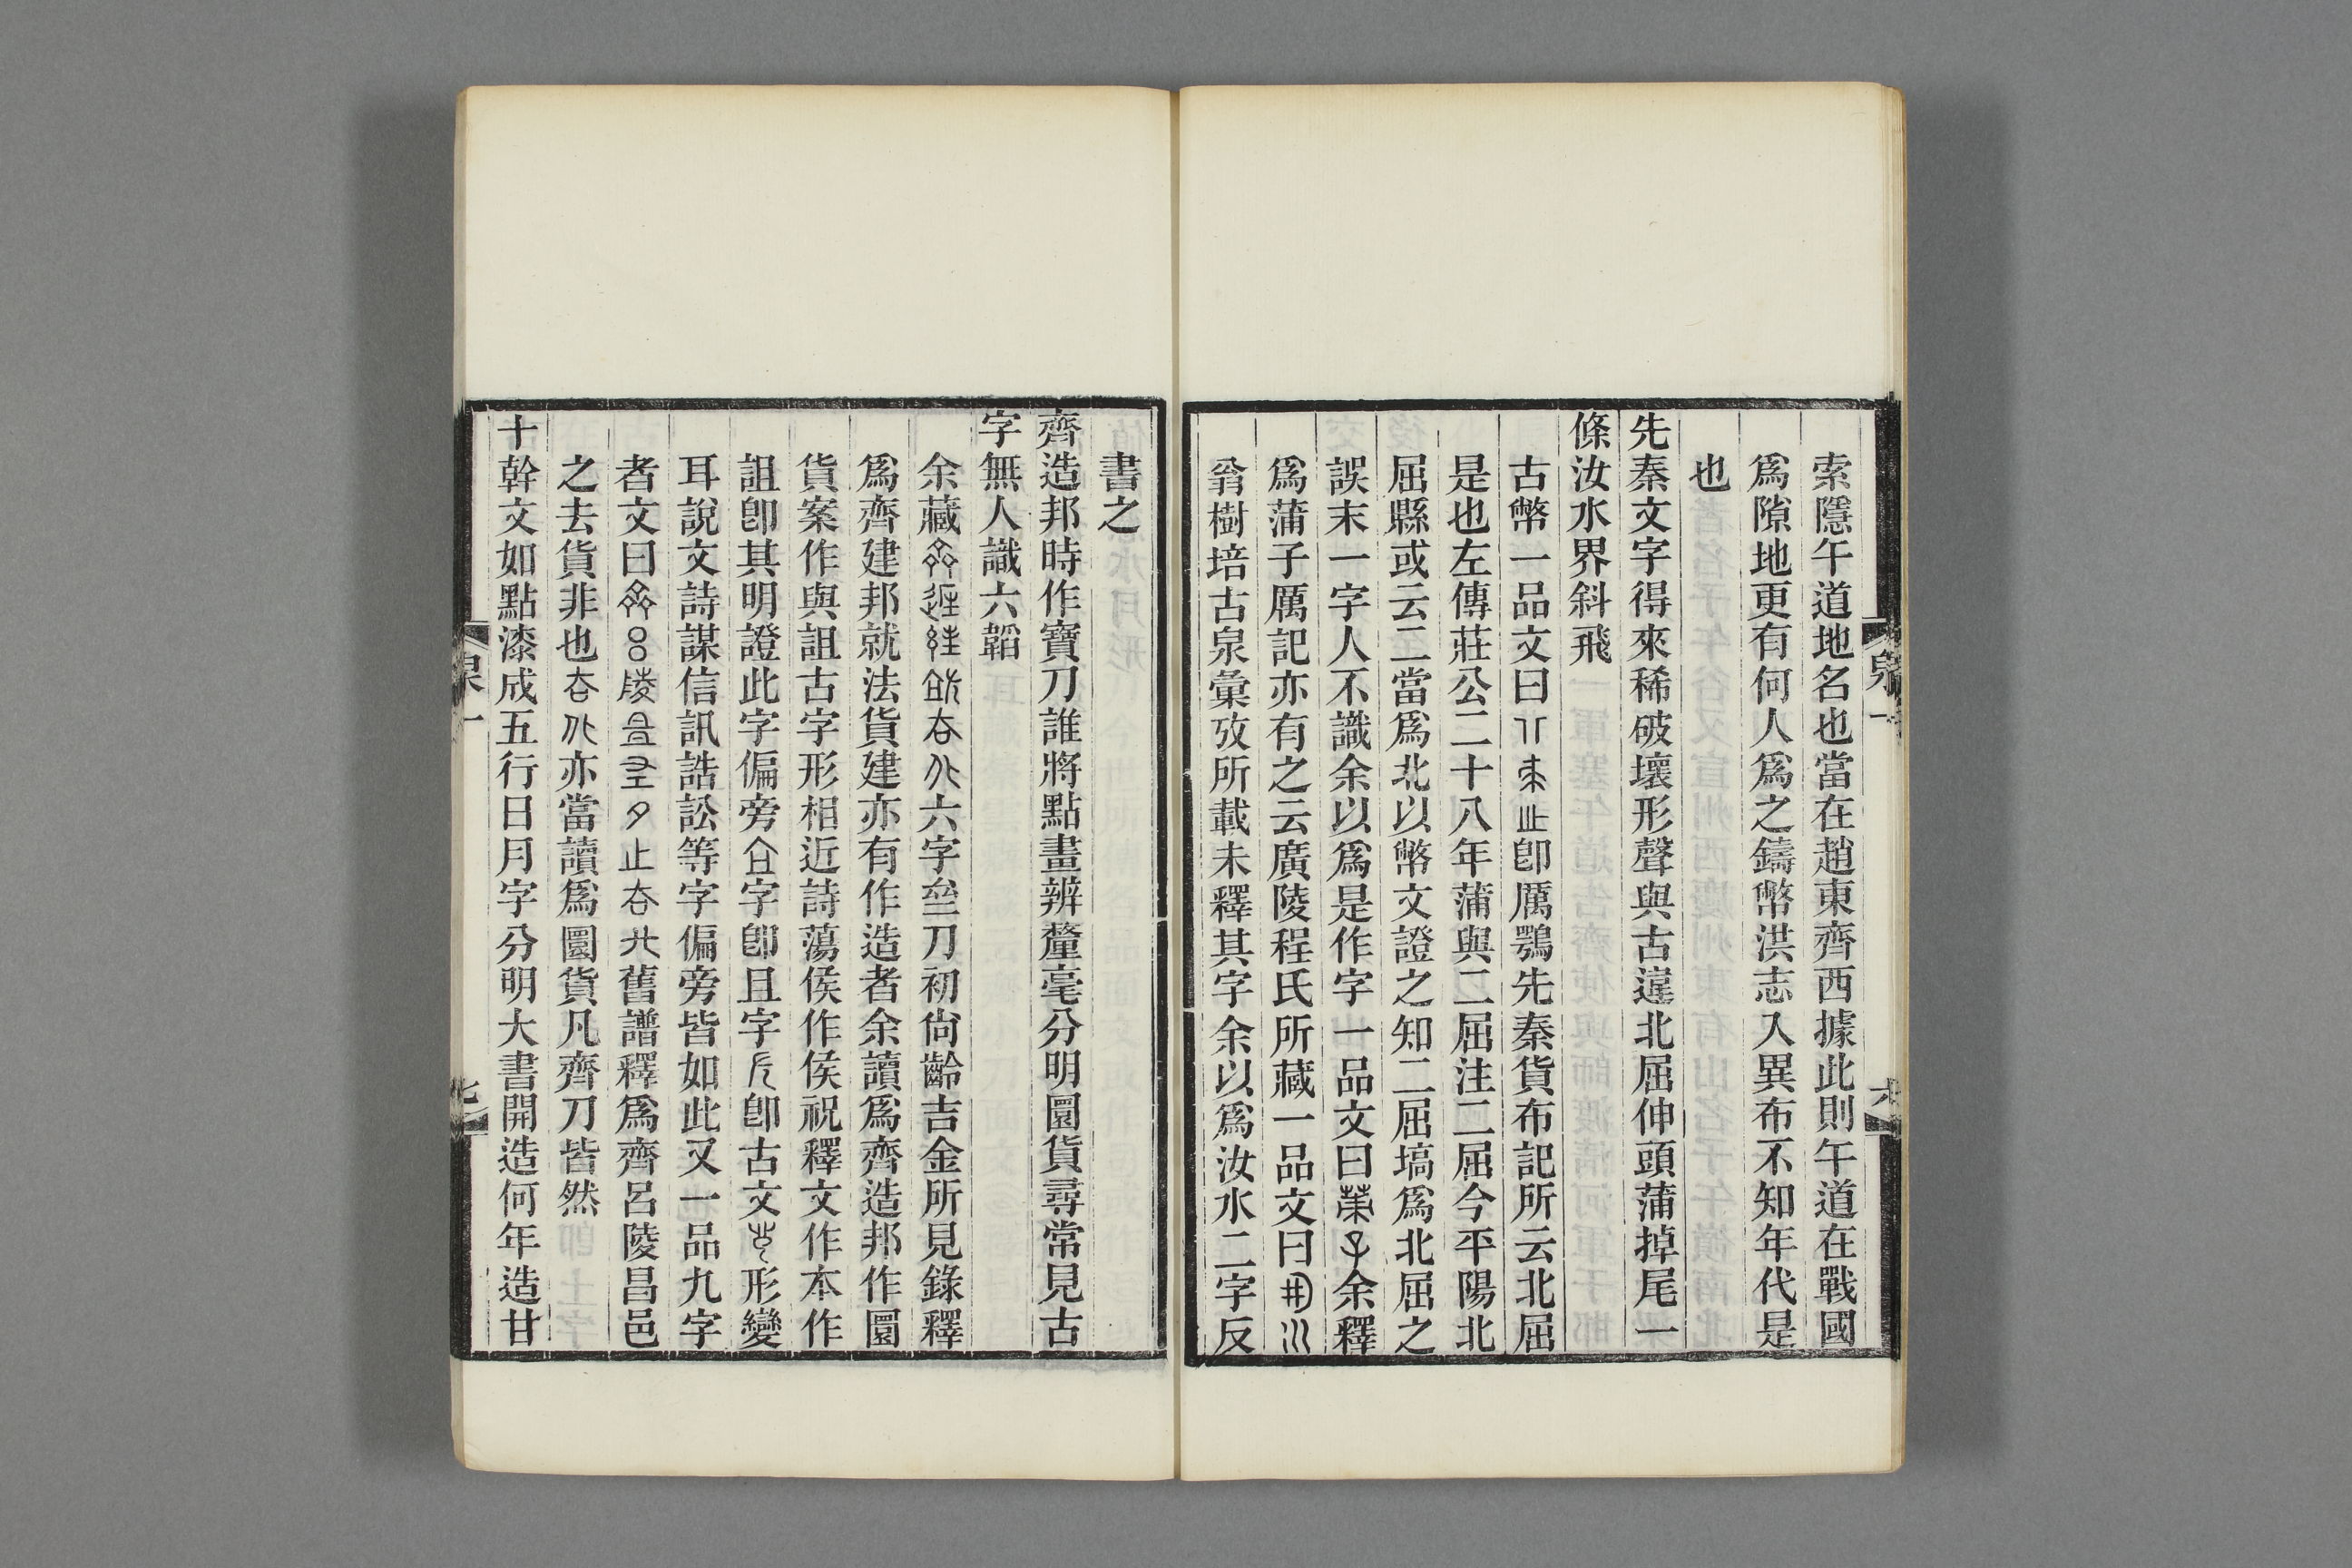 索隱午道地名也當在趙東齊西據此則午道在戰國
爲隙地更有何人爲之鑄幣洪志入異布不知年代是
也
先秦文字得來稀破壞形聲與古違北屈伸頭蒲掉尾一
條汝水界斜飛
古幣一品文曰卽厲鶚先秦貨布記所云北屈
是也左傳莊公二十八年蒲與二屈注二屈今平陽北
屈縣或云二當爲北以幣文證之知二屈塙爲北屈之
誤末一字人不識余以爲是作字一品文曰余釋
爲蒲子厲記亦有之云廣陵程氏所藏一品文曰
翁樹培古泉彙攷所載未釋其字余以爲汝水二字反
書之
齊造邦時作寶刀誰將點畫辨釐毫分明圜貨尋常見古
字無人識六韜
余藏六字刀初尙齡吉金所見錄釋
爲齊建邦就法貨建亦有作造者余讀爲齊造邦作圜
貨案作與詛古字形相近詩蕩侯作侯祝釋文作本作
詛卽其明證此字偏旁字卽且字卽古文形變
耳說文詩謀信訊誥訟等字偏旁皆如此又一品九字
者文曰舊譜釋爲齊呂陵昌邑
之去貨非也亦當讀爲圜貨凡齊刀皆然
十幹文如點漆成五行日月字分明大書開造何年造甘
泉一
六
泉一
七